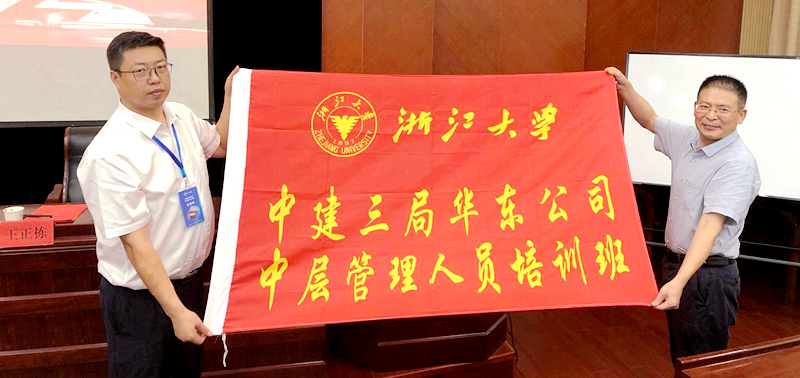 浙江大学
1897
ZHEJIANG UNIVERSITY
浙江大学
中建三局华东公司
中层管理人员培训班
王正栋